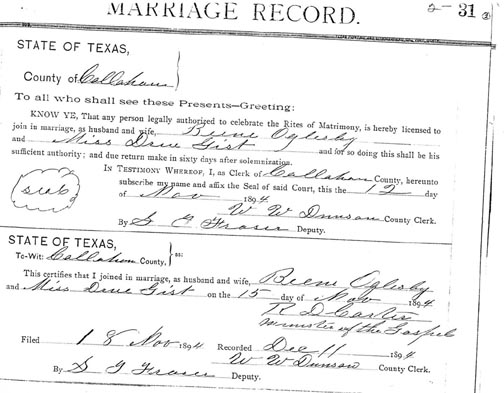 MARRIAGE RECORD.
2-31
STATE OF TEXAS,
County of Callahan
To all who shall see these Presents—Greeting:
KNOW YE, That any person legally authorized to celebrate the Rites of Matrimony, is hereby licensed to
join in marriage, as husband and wife, Beene Oglesby
and Miss Drue Gist and for so doing this shall be his
sufficient authority; and due return make in sixty days after solemnization.
IN TESTIMONY WHEREOF, I, as Clerk of Callahan County, hereunto
subscribe my name and affix the Seal of said Court, this the 12 day
seal
of Nov 1894
W W Dunson County Clerk.
By S J Fraser Deputy.
STATE OF TEXAS,
To-Wit: Callahan County, ss:
This certifies that I joined in marriage, as husband and wife, Beene Oglesby
and Miss Drue Gist on the 15 day of Nov 1894
R D Carter
Minister of the Gospel
Filed 18 Nov 1894 Recorded Dec 11 1894
W W Dunson County Clerk.
By S J Fraser Deputy.